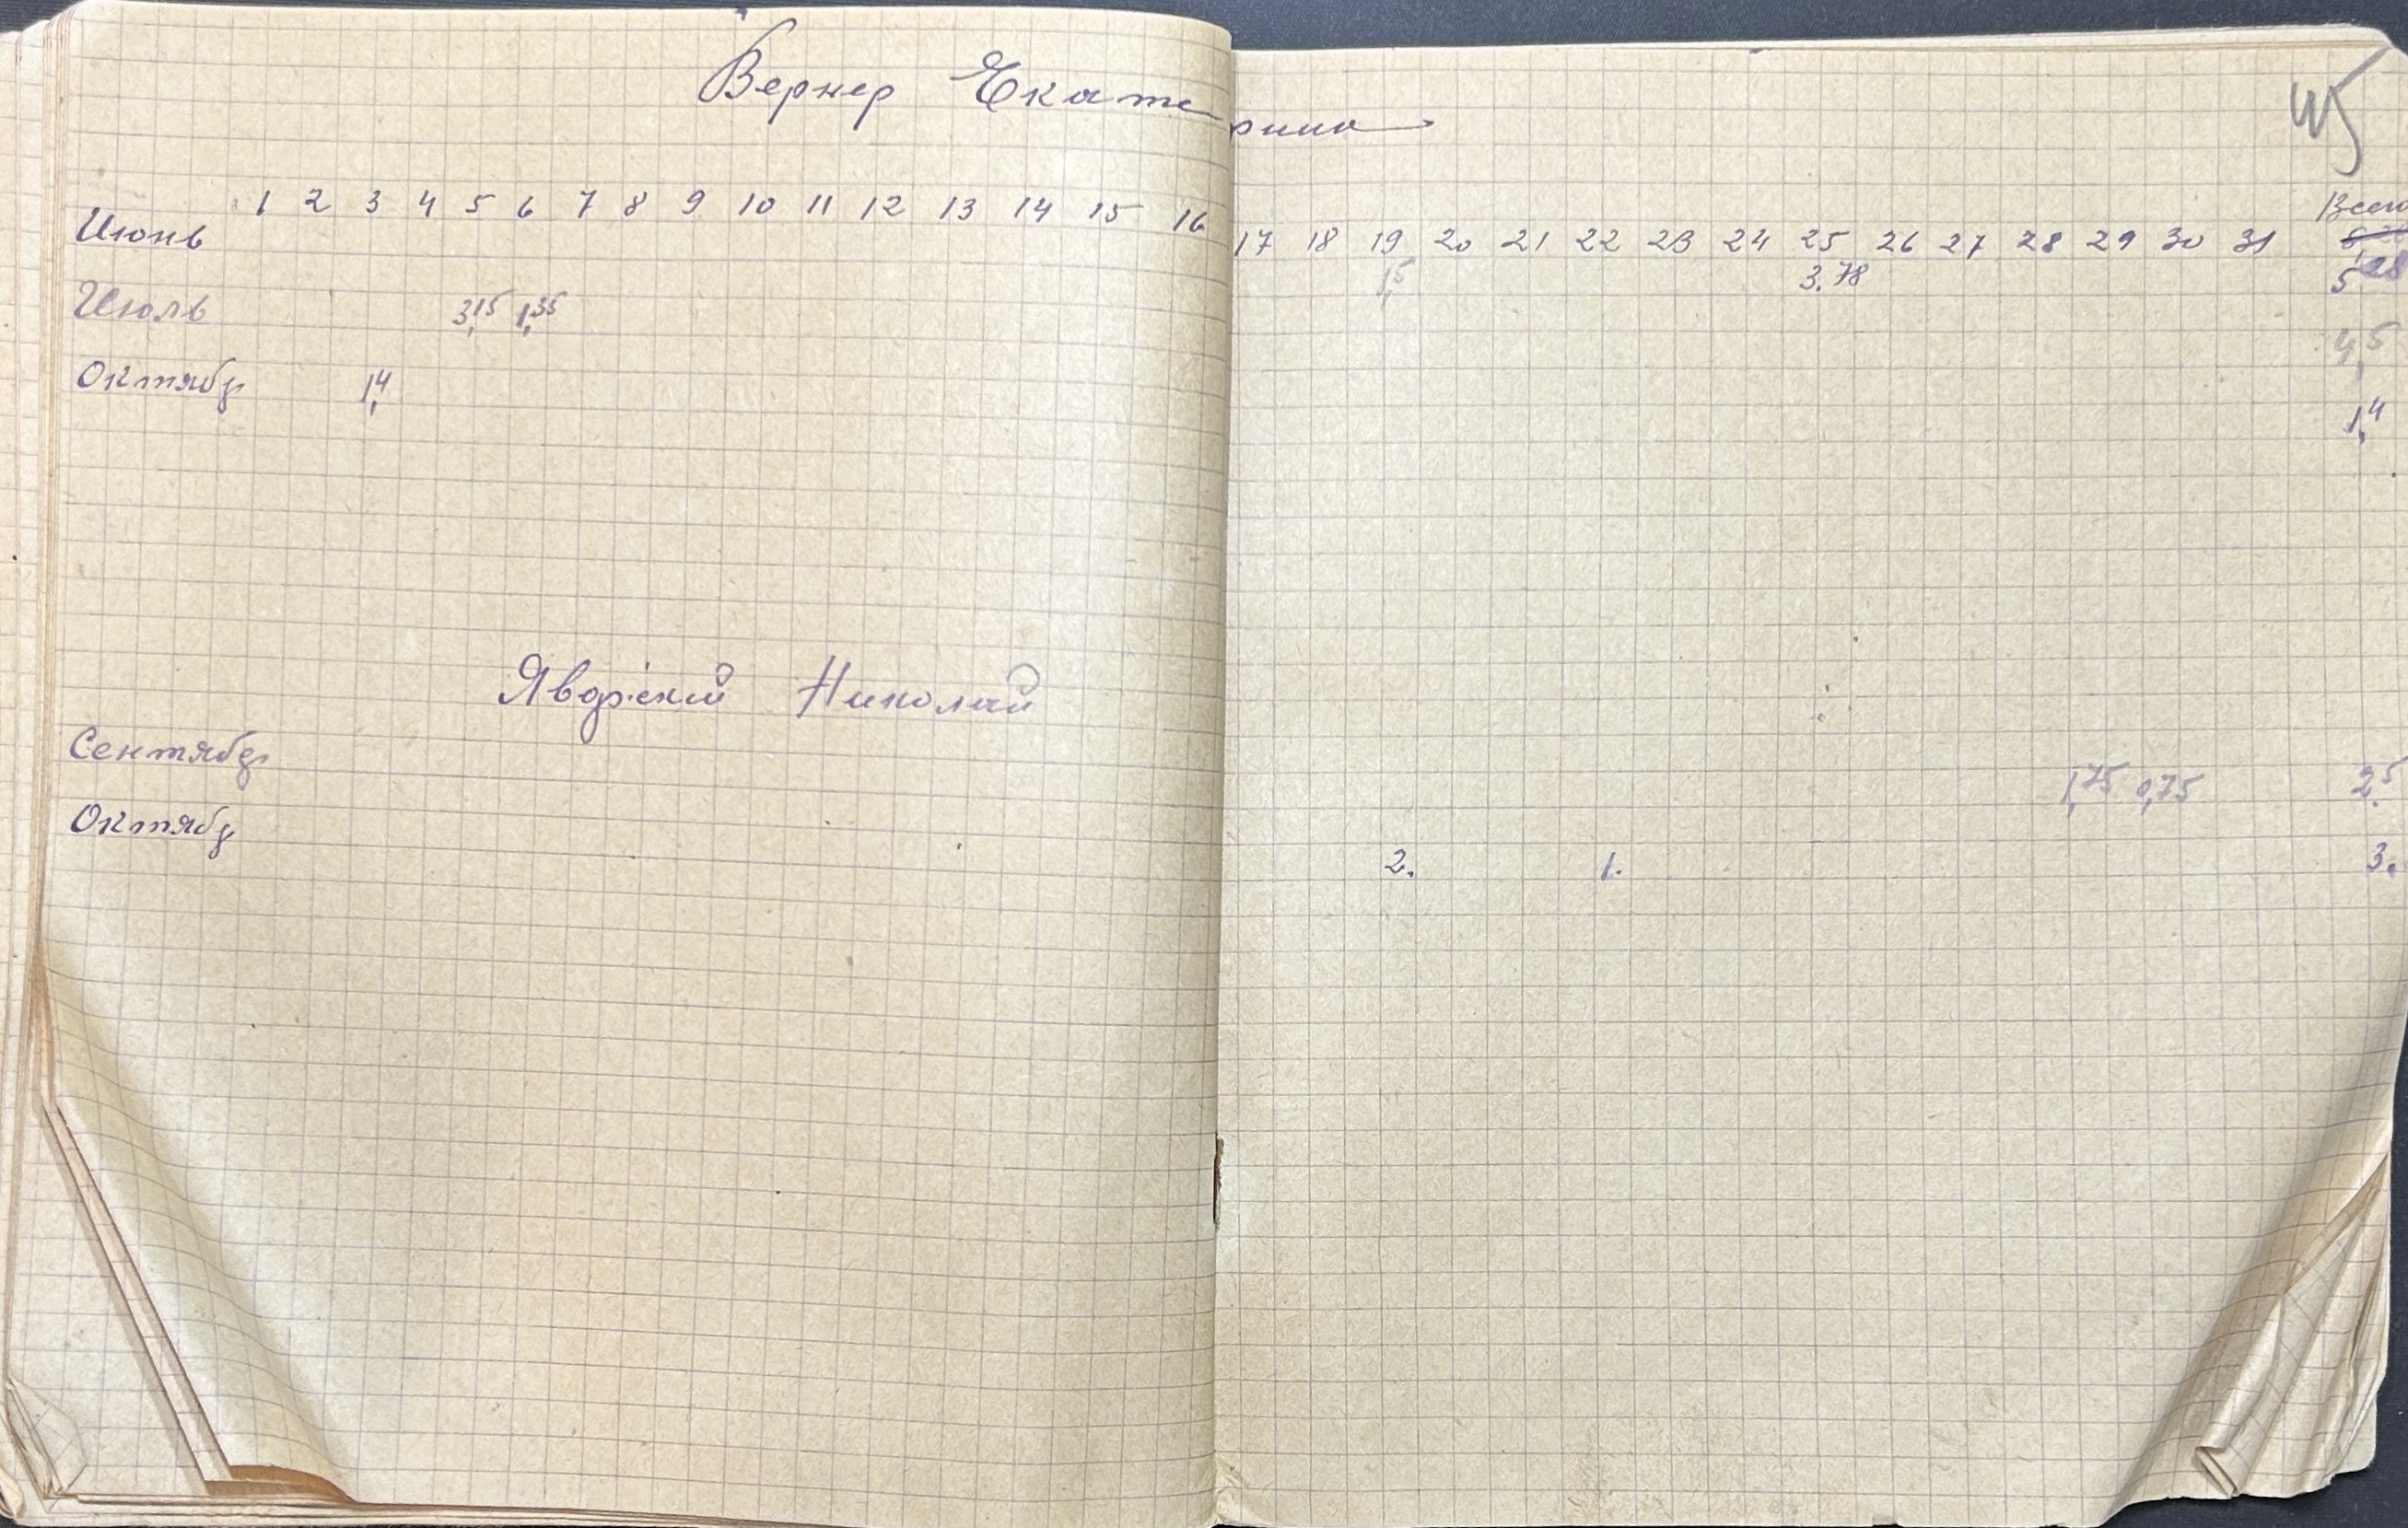 Вернер Екатерина
1 2 3 4 5 6 7 8 9 10 11 12 13 14 15 16 17 18 19 20 21 22 23 24 25 26 27 28 29 30 31 Всего
Июнь 1,5 3.78 5,28
Июль 3,15 1,35 4,5
Октябр 1,4 1,4
Яворский Николай
Сентябр 1,75 0,75 2.5
Октябр 2. 1. 3.